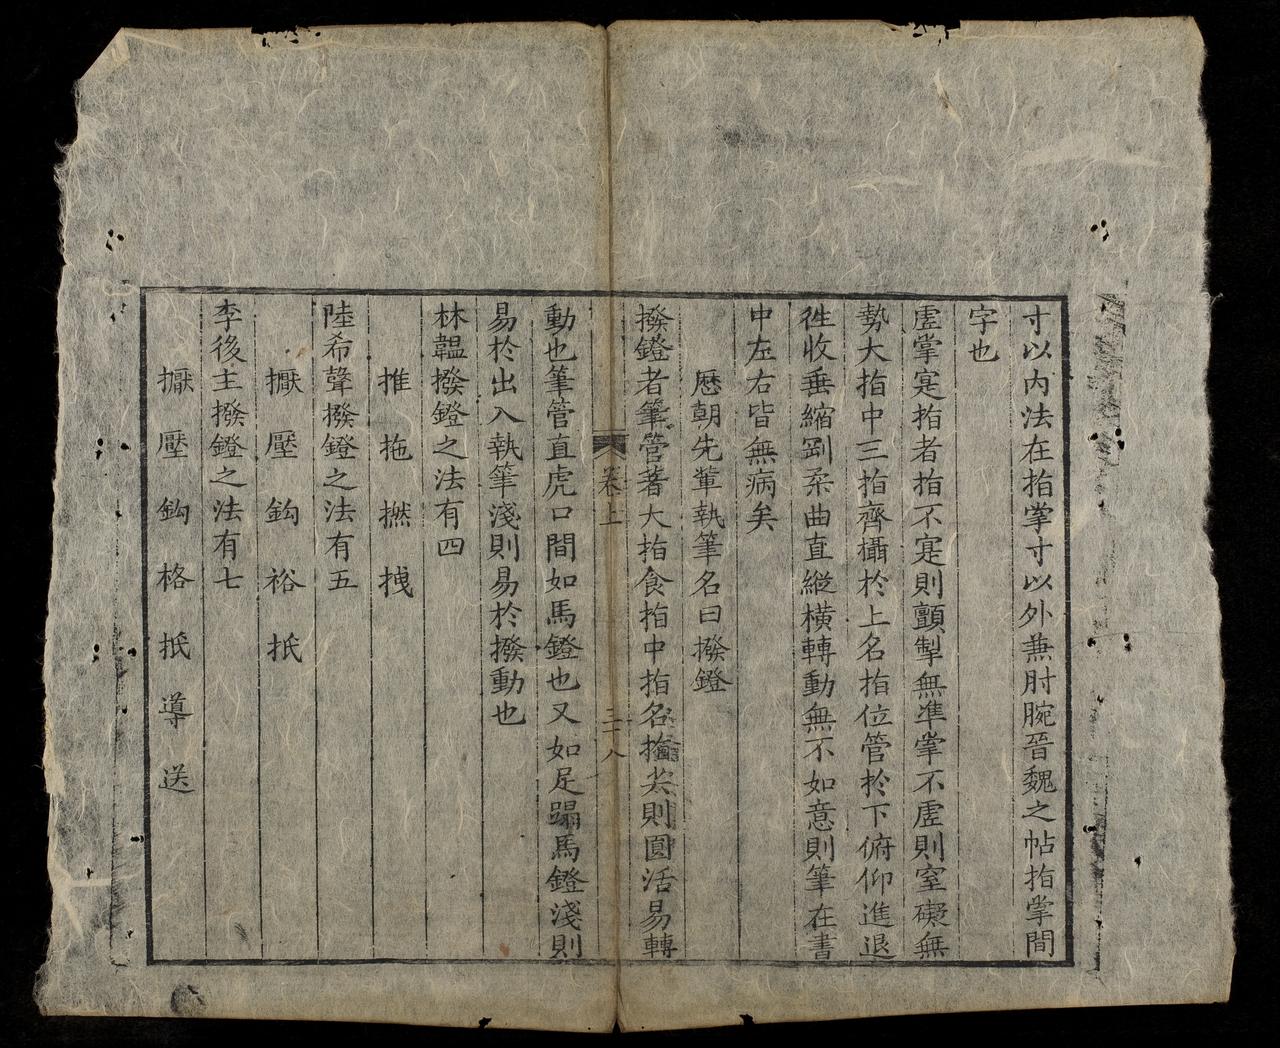 寸以內法在指掌寸以外兼肘腕晉魏之帖指掌間
字也
虛掌寔指者指不寔則顫掣無準掌不虛則窒礙無
勢大指中三指齊攝於上名指位管於下俯仰進退
徃收垂縮剛柔曲直縱橫轉動無不如意則筆在書
中左右皆無病矣
歷朝先輩執筆名曰撥鐙
撥鐙者筆管著大指食指中指名指尖則圓活易轉
卷上
三十八
動也筆管直虎口間如馬鐙也又如足蹋馬鐙淺則
易於出入執筆淺則易於撥動也
林韞撥鐙之法有四
推拖撚拽
陸希聲撥鐙之法有五
擫壓鈎格抵
李後主撥鐙之法有七
擫壓鈎格抵導送